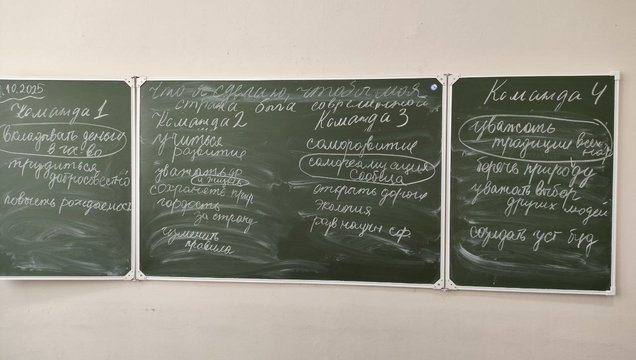 .10.2025
Что я сделаю, чтобы моя
страна была современной
Команда 1
вкладывать деньги
в
трудиться
добросовестно
повысить рождаемость
Команда 2
учиться
развитие
уважать
сохранять прир
гордость
за страну
изучить
правила
Команда 3
саморазвитие
самореализация
открыть дороги
экология
Команда 4
уважать
традиции всех
нар
беречь природу
уважать выбор
других людей
создать уст буд